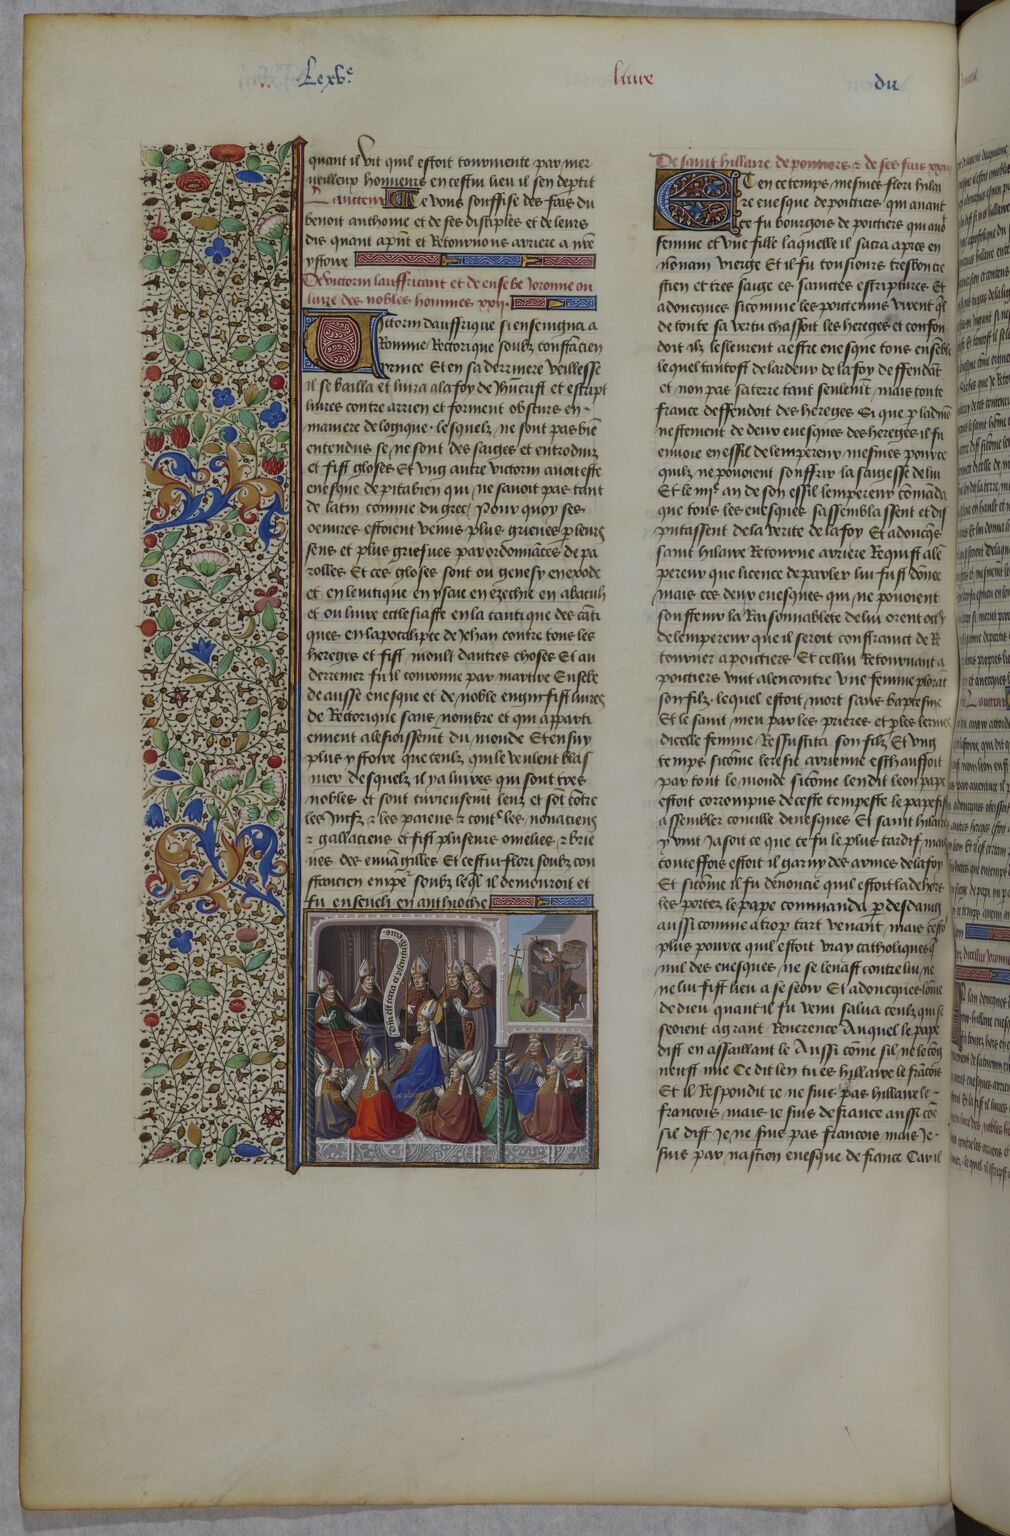 Le xv.e livre du
quant il vit quil estoit tourmente par mer
veilleux honneurs en cestui lieu il sen deptit
Lacteur Ce vous souffise des fais du
benoit anthoine et de ses disciples et de leurs
dis quant apnt et Retournons arriere a nre
ystoire
De victorin lauffricant et de eusebe Jeromme ou
livre des nobles hommes xxii.
Victorin dauffrique si enseigna a
Romme Rectorique soubz constancien
prince Et en sa derreniere veillesse
il se bailla et livra a la foy de Jhucrist et escript
livres contre arrien et forment obscurs en
maniere de logique lesquelz ne sont pas bie
entendus se ne sont des saiges et entroduiz
et fist gloses Et ung autre victorin avoit este
evesque de pitabien qui ne savoit pas tant
de latin comme du grec Pour quoy ses
oeuvres estoient venus plus grieves p leurs
sens et plus griefves par ordonnaces de pa
rolles Et ces gloses sont ou genesy en exode
et en levitique en ysaie en ezechie en abacuh
et ou livre ecclesiaste en la cantique des cati
ques en lapocalipce de Jehan contre tous les
hereges et fist moult dautres choses Et au
derrenier fu il couronne par martire Eusebe
de ausse evesque et de noble engin fist livres
de Rectorique sans nombre et qui apparti
ennent a lesioissemt du monde Et ensuy
plus ystoire que ceulz qui le veulent blas
mer desquelz il y a livres qui sont tres
nobles et sont curieusemt leuz et sot cotre
les Juifz et les paiens et cont les novaciens
et gallaciens et fist plusieurs omelies et brie
ves des euvagilles Et cestui flori soubz con
stancien empe soubz leql il demouroit et
fu enseveli en anthioche
De saint hillaire de poitiers et de ses fais xxiii
Et en ce temps mesmes flori hilai
re evesque de poitiers qui avant
ce fu bourgois de poitiers qui avoit
femme et une fille laquelle il sacra apres en
nonain vierge Et il fu tousiours tresbon cre
stien et tres saige es sainctes escriptures Et
adoncques si comme les poitevins virent ql
de toute sa vertu chassoit les hereges et confon
doit ilz lesleurent a estre evesque tous enseble
lequel tantost de lardeur de la foy deffendat
et non pas sa terre tant seulemt mais toute
france deffendoit des hereges Si que p ladmo
nestement de deux evesques des hereges il fu
envoie en essil de lempereur mesmes pource
quilz ne povoient souffrir la saigesse de lui
Et le iiiie an de son essil lempereur comada
que tous les evesques sassemblassent et dis
putassent de la verite de la foy Et adoncqes
saint hilaire Retourne arriere Requist a lem
pereur que licence de parler lui fust donee
mais ces deux evesques qui ne povoient
soustenir la Raisonnablete de lui orent octy
de lempereur que il seroit constraint de R
tourner a poictiers Et cellui Retournant a
poictiers vint a lencontre une femme plorat
son filz lequel estoit mort sans baptesme
Et le saint meu par les prieres et p les lermes
dicelle femme Ressuscita son filz Et ung
temps sicome leresie arrienne eschauffoit
par tout le monde sicome len dit leon pape
estoit corrompus de ceste tempeste le pape fist
assembler concille devesques Et saint hilaire
y vint Jasoit ce que ce fu le plus tardif mais
touteffois estoit il garny des armes de la foy
Et sicome il fu denoncie quil estoit la dehors
les portez le pape commanda p desdaing
aussi comme a trop tart venant mais cestoit
plus pource quil estoit vray catholiques q
nul des evesques ne se levast contre lui ne
ne lui fist lieu a se seoir Et adoncques lome
de dieu quant il fu venu salua ceulz qui se
seoient a grant Reverence Auquel le pape
dist en assaillant le Aussi come sil ne le cog
neust mie Ce dit len tu es hyllaire le francois
Et il Respondit ie ne suis pas hyllaire le
francois mais ie suis de france aussi coe
sil dist Je ne suis pas francois mais Je
suis par nascion evesque de france Car il